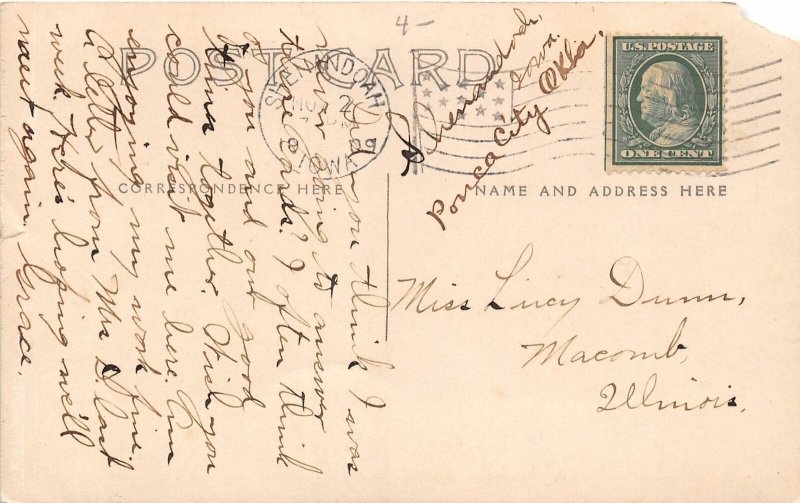 4-
POST CARD
SHENANDOAH
NOV
2
1909
IOWA
U.S. POSTAGE
ONE CENT
CORRESPONDENCE HERE
NAME AND ADDRESS HERE
Shenandoah,
Iowa.
Ponca City Okla.
Did you think I was
never going to answer
the cards? I often think
of you and our good
times together. Wish you
could visit me here. Am
enjoying my work fine.
A letter from Mrs D. last
week. Here's hoping we'll
meet again. Grace.
Miss Lucy Dunn,
Macomb,
Illinois.